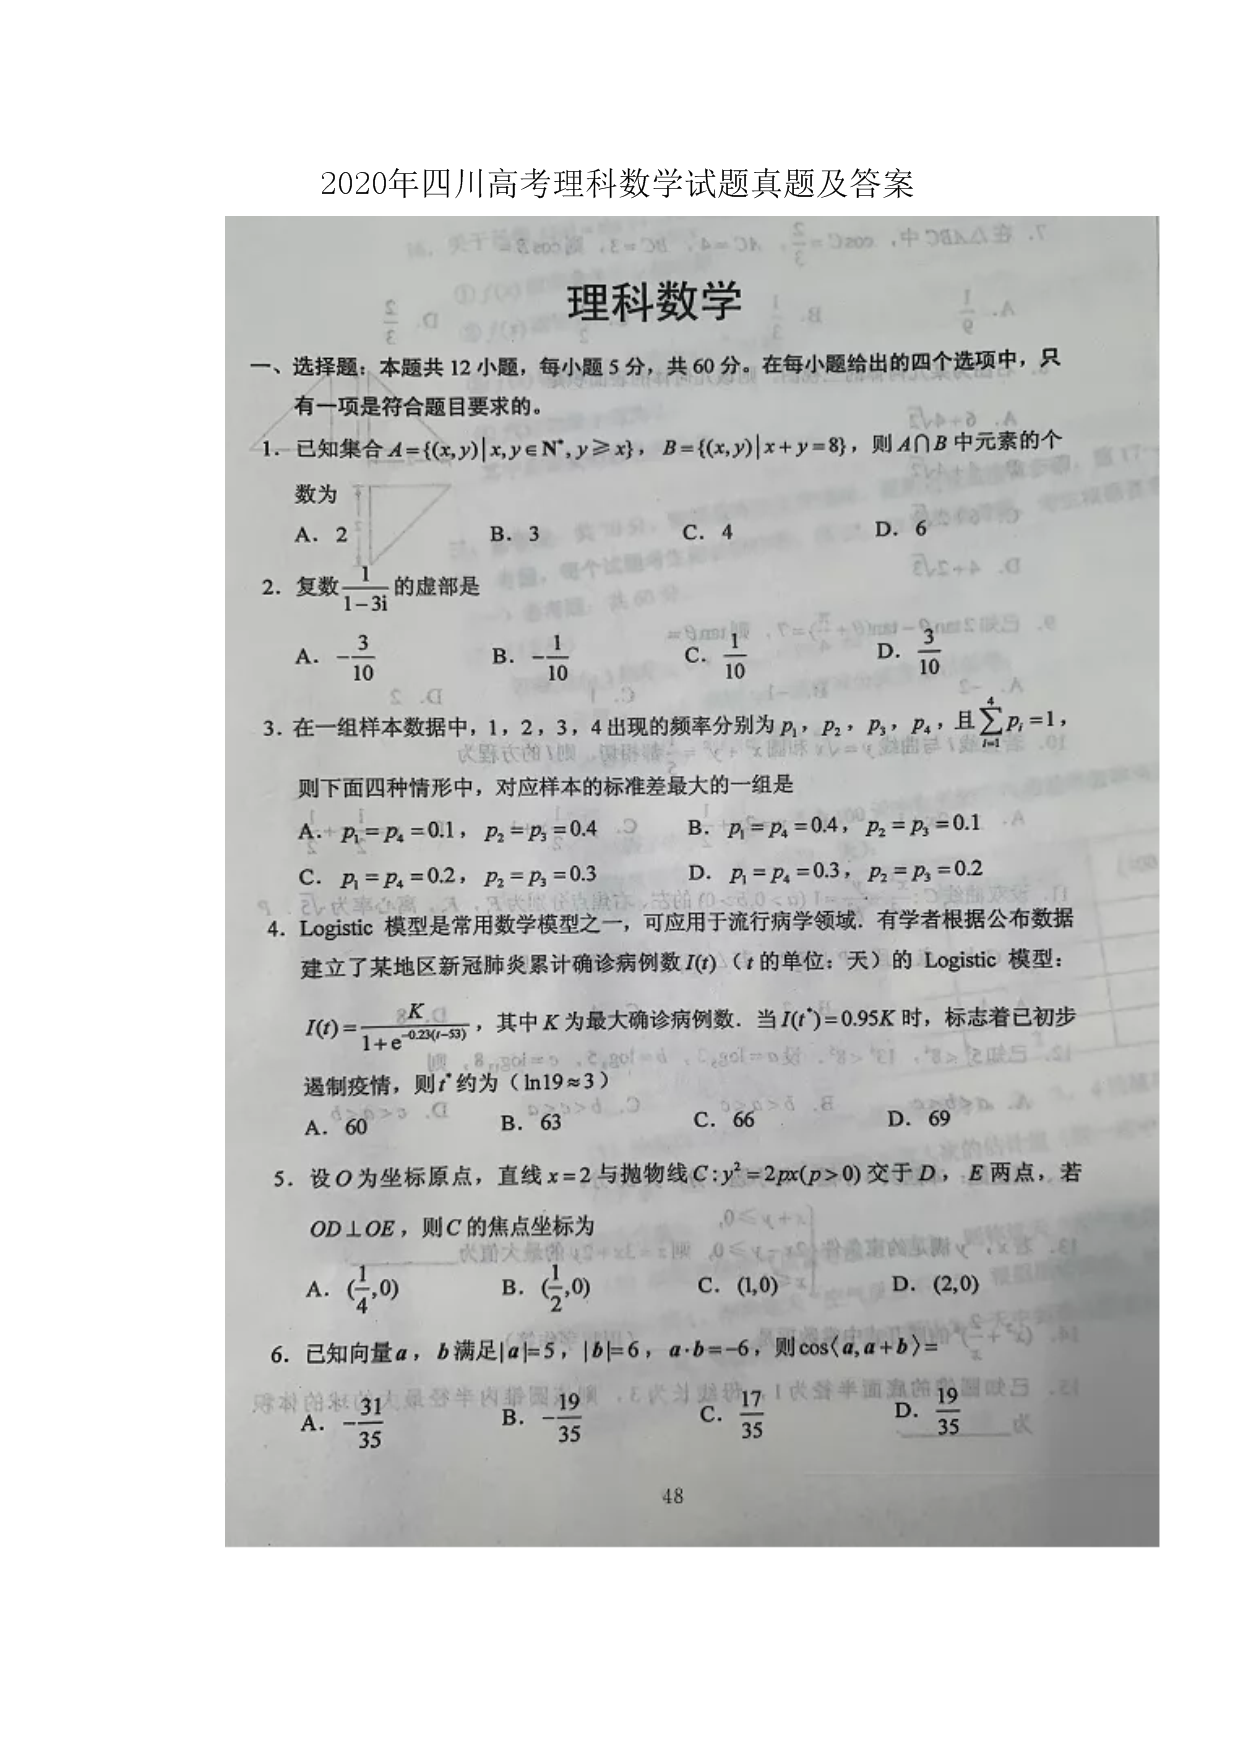 2020年四川高考理科数学试题真题及答案
理科数学
一、选择题：本题共 12 小题，每小题 5 分，共 60 分。在每小题给出的四个选项中，只
有一项是符合题目要求的。
1. 已知集合 A={(x,y)|x,y∈N*,y≥x}，B={(x,y)|x+y=8}，则 A∩B 中元素的个
数为
A. 2 B. 3 C. 4 D. 6
2. 复数 1/(1-3i) 的虚部是
A. -3/10 B. -1/10 C. 1/10 D. 3/10
3. 在一组样本数据中，1，2，3，4 出现的频率分别为 p₁，p₂，p₃，p₄，且 ∑_{i=1}^{4} pᵢ=1，
则下面四种情形中，对应样本的标准差最大的一组是
A. p₁=p₄=0.1，p₂=p₃=0.4 B. p₁=p₄=0.4，p₂=p₃=0.1
C. p₁=p₄=0.2，p₂=p₃=0.3 D. p₁=p₄=0.3，p₂=p₃=0.2
4. Logistic 模型是常用数学模型之一，可应用于流行病学领域．有学者根据公布数据
建立了某地区新冠肺炎累计确诊病例数 I(t)（t 的单位：天）的 Logistic 模型：
I(t)=K/(1+e^{-0.23(t-53)})，其中 K 为最大确诊病例数．当 I(t*)=0.95K 时，标志着已初步
遏制疫情，则 t* 约为（ln19≈3）
A. 60 B. 63 C. 66 D. 69
5. 设 O 为坐标原点，直线 x=2 与抛物线 C:y²=2px(p>0) 交于 D，E 两点，若
OD⊥OE，则 C 的焦点坐标为
A. (1/4,0) B. (1/2,0) C. (1,0) D. (2,0)
6. 已知向量 a，b 满足|a|=5，|b|=6，a·b=-6，则 cos⟨a,a+b⟩=
A. -31/35 B. -19/35 C. 17/35 D. 19/35
48